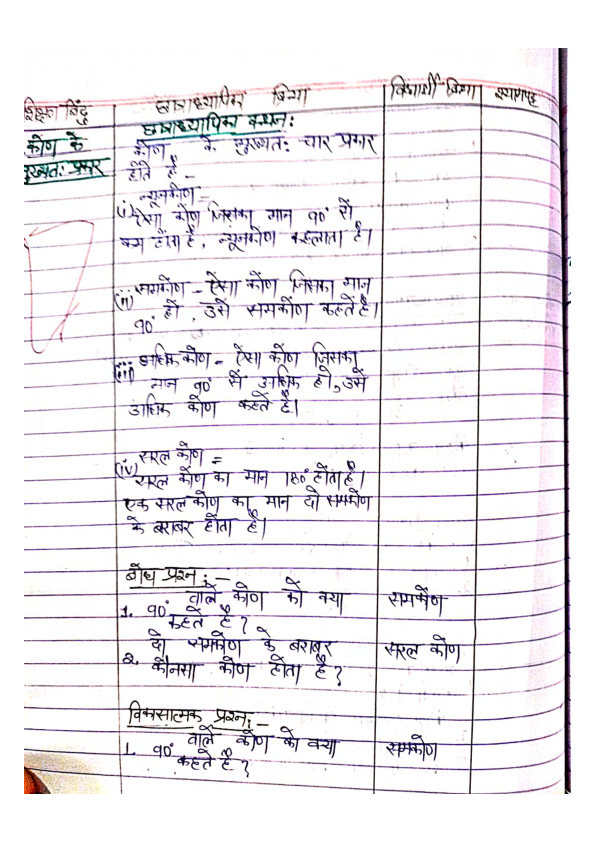 शिक्षण बिंदु छात्राध्यापिका क्रिया विद्यार्थी क्रिया श्यामपट्ट
कोण के मुख्यतः प्रकार
छात्राध्यापिका कथन:
कोण के मुख्यतः चार प्रकार
होते है -
(i) न्यूनकोण =
ऐसा कोण जिसका मान 90° से
कम होता है, न्यूनकोण कहलाता है।
(ii) समकोण - ऐसा कोण जिसका मान
90° हो, उसे समकोण कहते है।
(iii) अधिक कोण - ऐसा कोण जिसका
मान 90° से अधिक हो, उसे
अधिक कोण कहते है।
(iv) सरल कोण =
सरल कोण का मान 180° होता है।
एक सरल कोण का मान दो समकोण
के बराबर होता है।
बोध प्रश्न :-
1. 90° वाले कोण को क्या समकोण
कहते है ?
2. दो समकोण के बराबर सरल कोण
कौनसा कोण होता है ?
विकासात्मक प्रश्न :-
1. 90° वाले कोण को क्या समकोण
कहते है ?